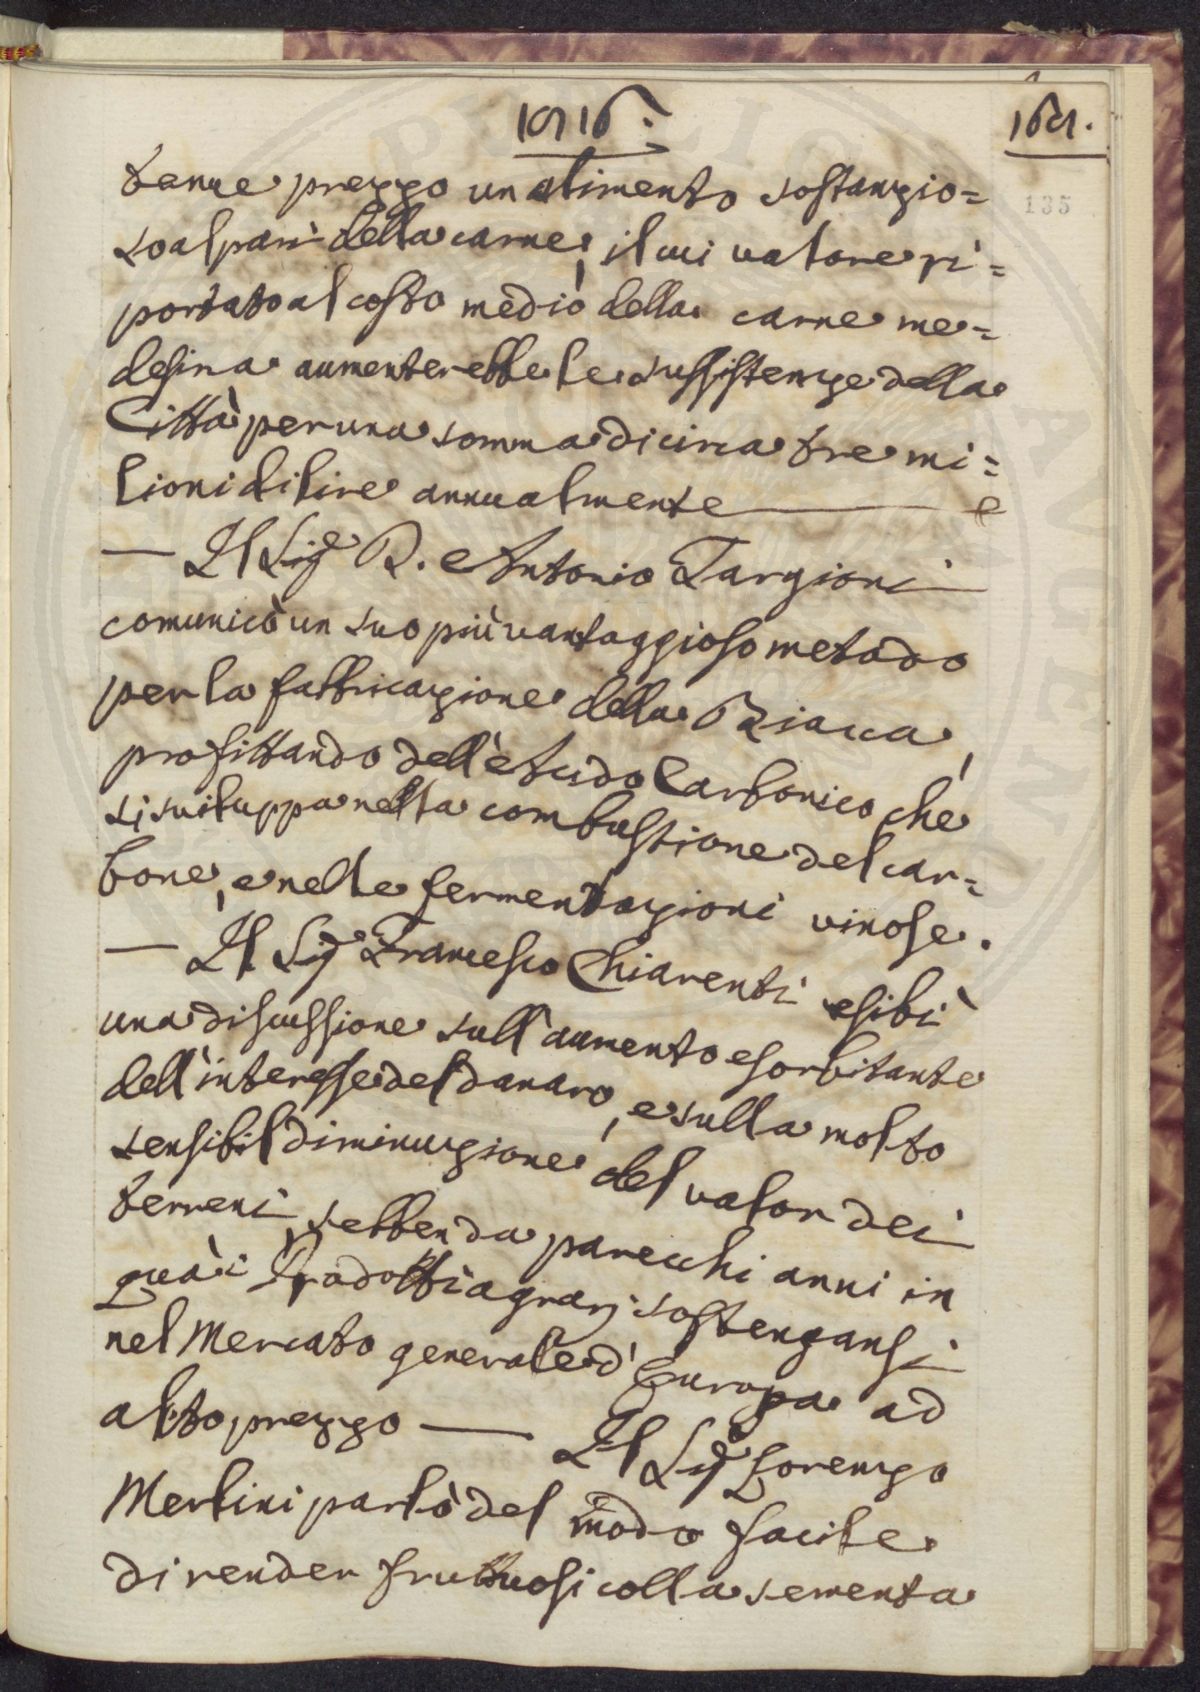 1816.
161.
135
tenue prezzo un alimento sostanzio=
so al pari della carne, il cui valore ri=
portato al costo medio della carne me=
desima aumenterebbe le sussistenze della
Città per una somma di circa tre mi=
lioni di lire annualmente
— Il Sig.e D. Antonio Targioni
comunicò un suo più vantaggioso metodo
per la fabbricazione della Biacca,
profittando dell'Acido Carbonico che
si sviluppa nella combustione del car=
bone, e nelle fermentazioni vinose.
— Il Sig.e Francesco Chiarenti esibì
una discussione sull'aumento esorbitante
dell'interesse del danaro, e sulla molto
sensibil diminuzione del valor dei
terreni, sebben da parecchi anni in
quà i Prodotti agrarj sostengansi
nel Mercato generale d'Europa ad
alto prezzo — Il Sig.e Lorenzo
Merlini parlò del modo facile
di render fruttuosi colla sementa